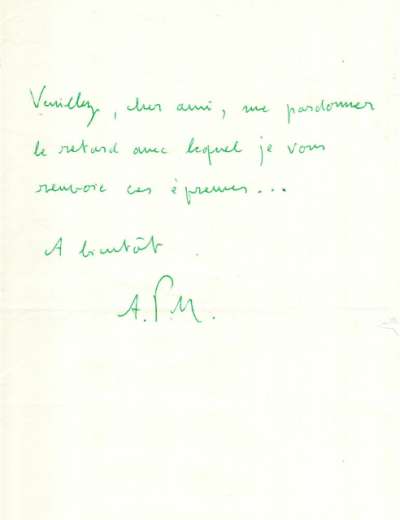 Veuillez, cher ami, me pardonner
le retard avec lequel je vous
renvoie ces épreuves...
A bientôt
A.P.M.